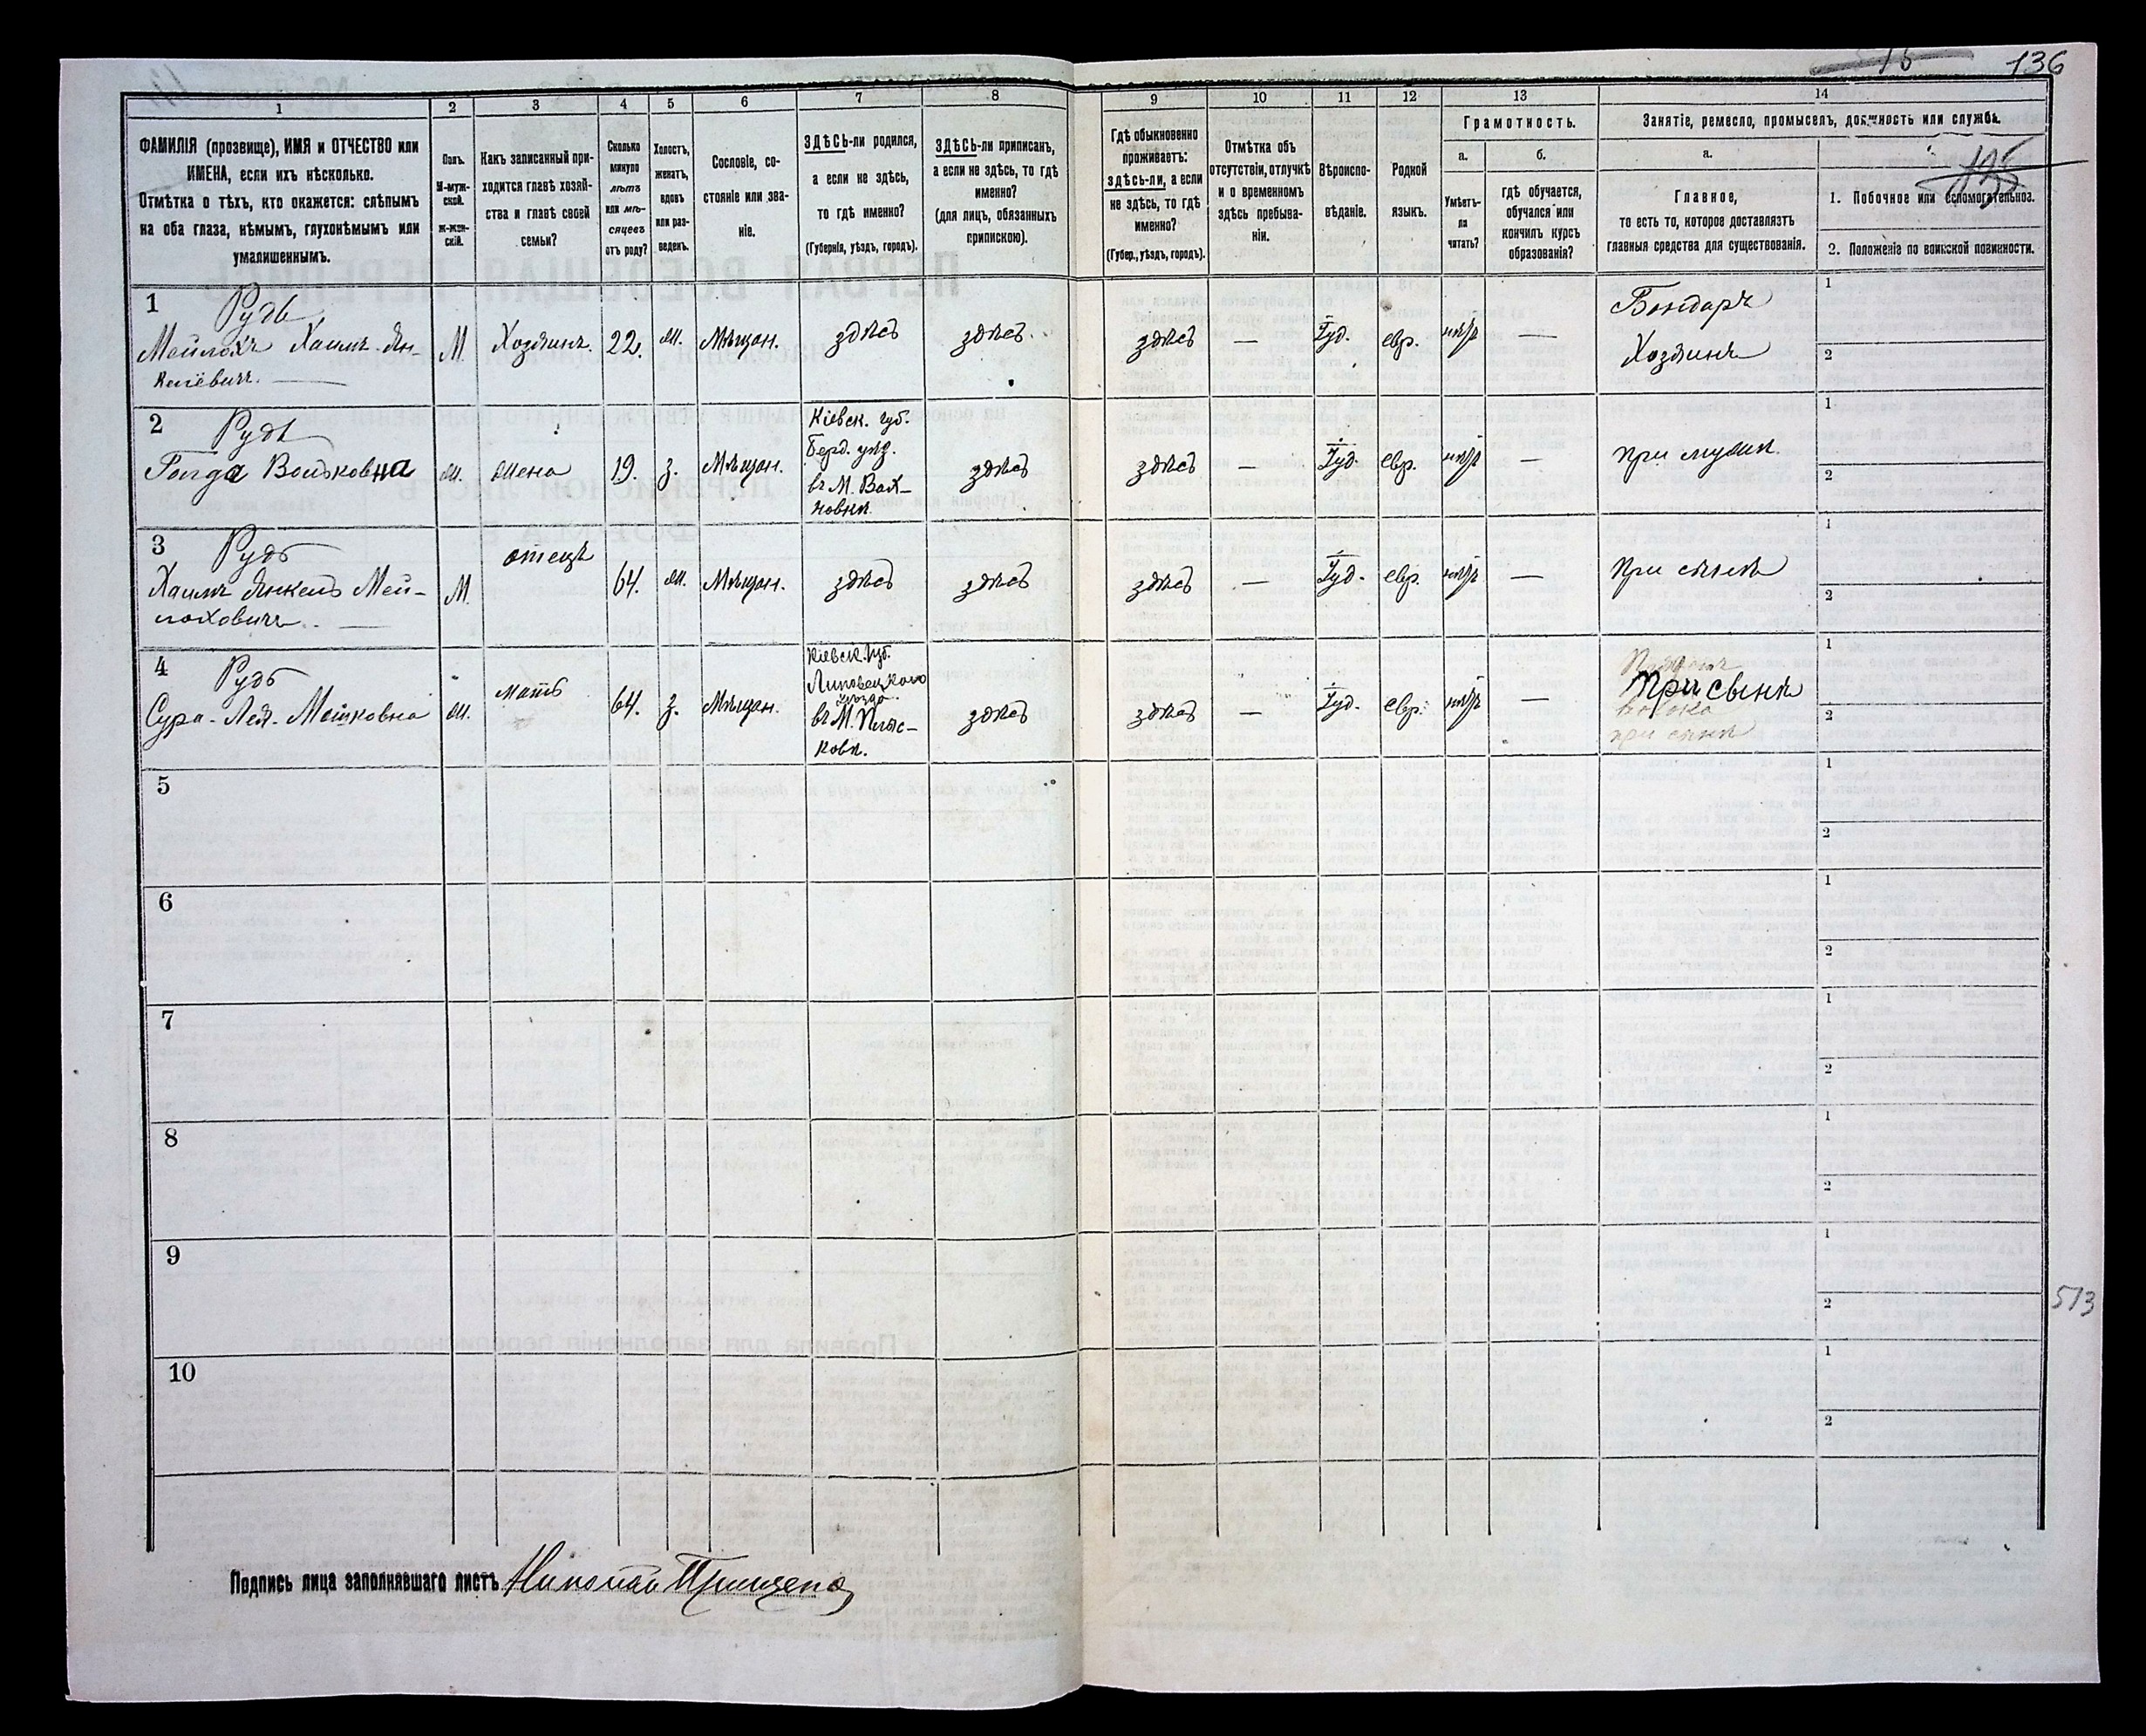 136
1 2 3 4 5 6 7 8 9 10 11 12 13 14
ФАМИЛІЯ (прозвище), ИМЯ и ОТЧЕСТВО или
ИМЕНА, если ихъ нѣсколько.
Отмѣтка о тѣхъ, кто окажется: слѣпымъ
на оба глаза, нѣмымъ, глухонѣмымъ или
умалишеннымъ.
Полъ.
М-муж-
ской.
Ж-жен-
скій.
Какъ записанный при-
ходится главѣ хозяй-
ства и главѣ своей
семьи?
Сколько
минуло
лѣтъ
или мѣ-
сяцевъ
отъ роду?
Холостъ,
женатъ,
вдовъ
или раз-
веденъ.
Сословіе, со-
стояніе или зва-
ніе.
ЗДѢСЬ-ли родился,
а если не здѣсь,
то гдѣ именно?
(Губернія, уѣздъ, городъ).
ЗДѢСЬ-ли приписанъ,
а если не здѣсь, то гдѣ
именно?
(для лицъ, обязанныхъ
припискою).
Гдѣ обыкновенно
проживаетъ:
здѣсь-ли, а если
не здѣсь, то гдѣ
именно?
(Губер., уѣздъ, городъ).
Отмѣтка объ
отсутствіи, отлучкѣ
и о временномъ
здѣсь пребыва-
ніи.
Вѣроиспо-
вѣданіе.
Родной
языкъ.
Грамотность.
а.
Умѣетъ-
ли
читать?
б.
гдѣ обучается,
обучался или
кончилъ курсъ
образованія?
Занятіе, ремесло, промыселъ, должность или служба.
а.
Главное,
то есть то, которое доставляетъ
главныя средства для существованія.
1. Побочное или вспомогательное.
2. Положеніе по воинской повинности.
1
Рудь
Мейлохъ Хаимъ-Ян-
келевичъ.
М.
Хозяинъ.
22.
ж.
Мѣщан.
здѣсь
здѣсь.
здѣсь
—
Іуд.
евр.
нѣтъ
—
Бондарь
Хозяинъ
1
2
2
Рудь
Голда Вольковна
ж.
жена
19.
з.
Мѣщан.
Кіевск. губ.
Берд. уѣз.
въ М. Вах-
новкѣ.
здѣсь
здѣсь
—
Іуд.
евр.
нѣтъ
—
при мужѣ.
1
2
3
Рудь
Хаимъ Янкель Мей-
лоховичъ.
М.
отецъ
64.
ж.
Мѣщан.
здѣсь
здѣсь
здѣсь
—
Іуд.
евр.
нѣтъ
—
при сынѣ
1
2
4
Рудь
Сура-Лея-Мошковна
ж.
мать
64.
з.
Мѣщан.
Кіевск. губ.
Липовецкаго
уѣзда
въ М. Плис-
ковѣ.
здѣсь
здѣсь
—
Іуд.
евр.
нѣтъ
—
При сынѣ
при сынѣ
1
2
5
1
2
6
1
2
7
1
2
8
1
2
9
1
2
513
10
1
2
Подпись лица заполнявшаго листъ Николай Прищепа